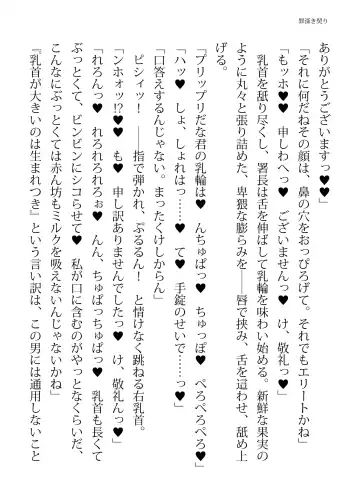 罪深き契り
ありがとうございますっ♥♥」
「それに何だねその顔は、鼻の穴をおっぴろげて。それでもエリートかね」
「もッホ♥♥　申しわへっ♥　ございませんっ♥　け、敬礼っ♥」
　乳首を舐り尽くし、署長は舌を伸ばして乳輪を味わい始める。新鮮な果実の
ように丸々と張り詰めた、卑猥な膨らみを――唇で挟み、舌を這わせ、舐め上
げる。
「プリップリだな君の乳輪は♥　んちゅぱっ♥　ちゅっぽ♥　ぺろぺろぺろ♥」
「ハッ♥　しょ、しょれはっ……♥　て♥　手錠のせいで……っ♥」
「口答えするんじゃない。まったくけしからん」
　ピシィッ！　――指で弾かれ、ぶるるん！　と情けなく跳ねる右乳首。
「ンホォッ!?♥♥　も♥　申し訳ありませんでしたっ♥　け、敬礼んっ♥」
「れろんろっ♥　れろれろれろぉ♥　んん、ちゅぱっちゅぱっ♥　乳首も長くて
ぶっとくて、ビンビンにシコらせて♥　私が口に含むのがやっとなくらいだ、
こんなにぶっとくては赤ん坊もミルクを吸えないんじゃないかね」
『乳首が大きいのは生まれつき』という言い訳は、この男には通用しないこと